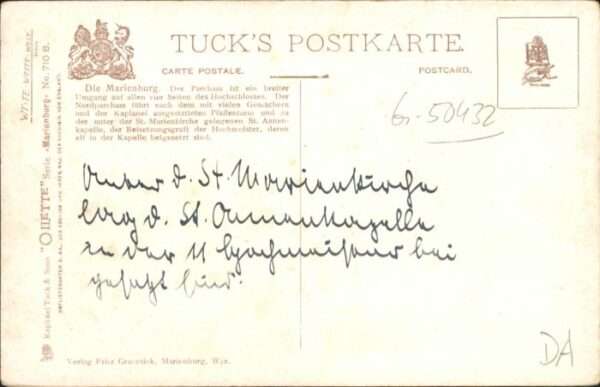 TUCK'S POSTKARTE.
CARTE POSTALE.
POSTCARD.
Die Marienburg. Der Parcham ist ein breiter
Umgang auf allen vier Seiten des Hochschlosses. Der
Nordparcham führt nach dem mit vielen Gemächern
und der Kaplanei ausgestatteten Pfaffenturm und zu
der unter der St. Marienkirche gelegenen St. Annen-
kapelle, der Beisetzungsgruft der Hochmeister, deren
elf in der Kapelle beigesetzt sind.
Gr-50432
Unter d. St. Marienkirche
lag d. St. Annenkapelle
in der 11 Hochmeister bei
gesetzt sind.
DA
Verlag Fritz Wpr.
Raphael Tuck & Sons' "OILETTE" Serie „Marienburg" No. 710 B.